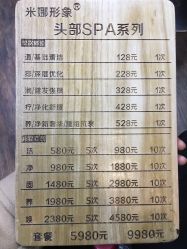 米娜形象®
头部SPA系列
道/基础重洁 128元 1次
228元 1次
328元 1次
疗/净化舒缓 428元 1次
528元 1次
洁 580元 5次 980元 10次
净 980元 5次 1880元 10次
1480元 5次 2980元 10次
养 1980元 5次 3880元 10次
焕 2380元 5次 4580元 10次
套餐 5980元 9980元